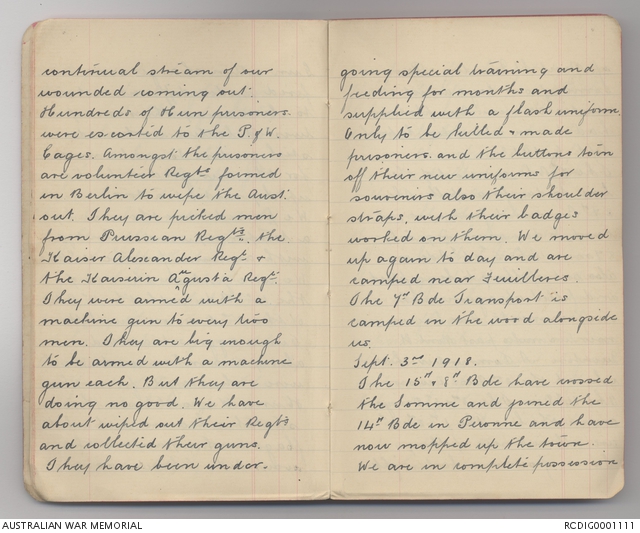 continual stream of our
wounded coming out.
Hundreds of Hun prisoners
were escorted to the P. of W.
Cages. Amongst the prisoners
are volunteer Regts formed
in Berlin to wipe the Aust.
out. They are picked men
from Prussian Regts. the
Kaiser Alexander Regt. &
the Kaiserin Augusta Regt.
They were armed with a
machine gun to every two
men. They are big enough
to be armed with a machine
gun each. But they are
doing no good. We have
about wiped out their Regts
and collected their guns.
They have been under-
going special training and
feeding for months and
supplied with a flash uniform.
Only to be killed & made
prisoners. and the buttons torn
off their new uniforms for
souvenirs also their shoulder
straps, with their badges
worked on them. We moved
up again to day and are
camped near Feuilleres.
The Bde Transport is
camped in the wood alongside
us.
Sept. 3rd 1918.
The 15th & 8th Bde have crossed
the Somme and joined the
14th Bde in Peronne and have
now mopped up the town.
We are in complete possession
AUSTRALIAN WAR MEMORIAL
RCDIG0001111